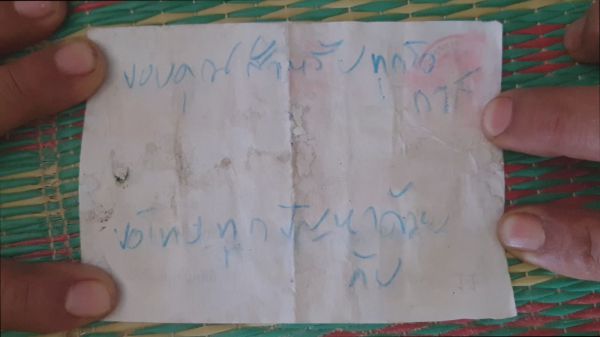 ขอบคุณสำหรับทุกโอ
กาส
ขอโทษทุกปัญหาด้วย
คับ